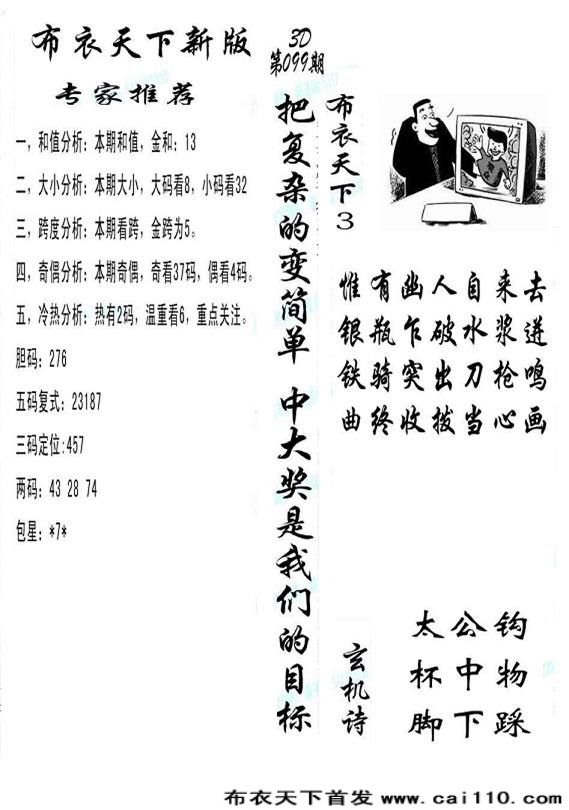 布衣天下新版
专家推荐
一，和值分析：本期和值，金和：13
二，大小分析：本期大小，大码看8，小码看32
三，跨度分析：本期看跨，金跨为5。
四，奇偶分析：本期奇偶，奇看37码，偶看4码。
五，冷热分析：热有2码，温重看6，重点关注。
胆码：276
五码复式：23187
三码定位:457
两码：43 28 74
包星：*7*
3D
第099期
把复杂的变简单 中大奖是我们的目标
布衣天下3
惟有幽人自来去
银瓶乍破水浆迸
铁骑突出刀枪鸣
曲终收拨当心画
玄机诗
太公钩
杯中物
脚下踩
布衣天下首发 www.cai110.com